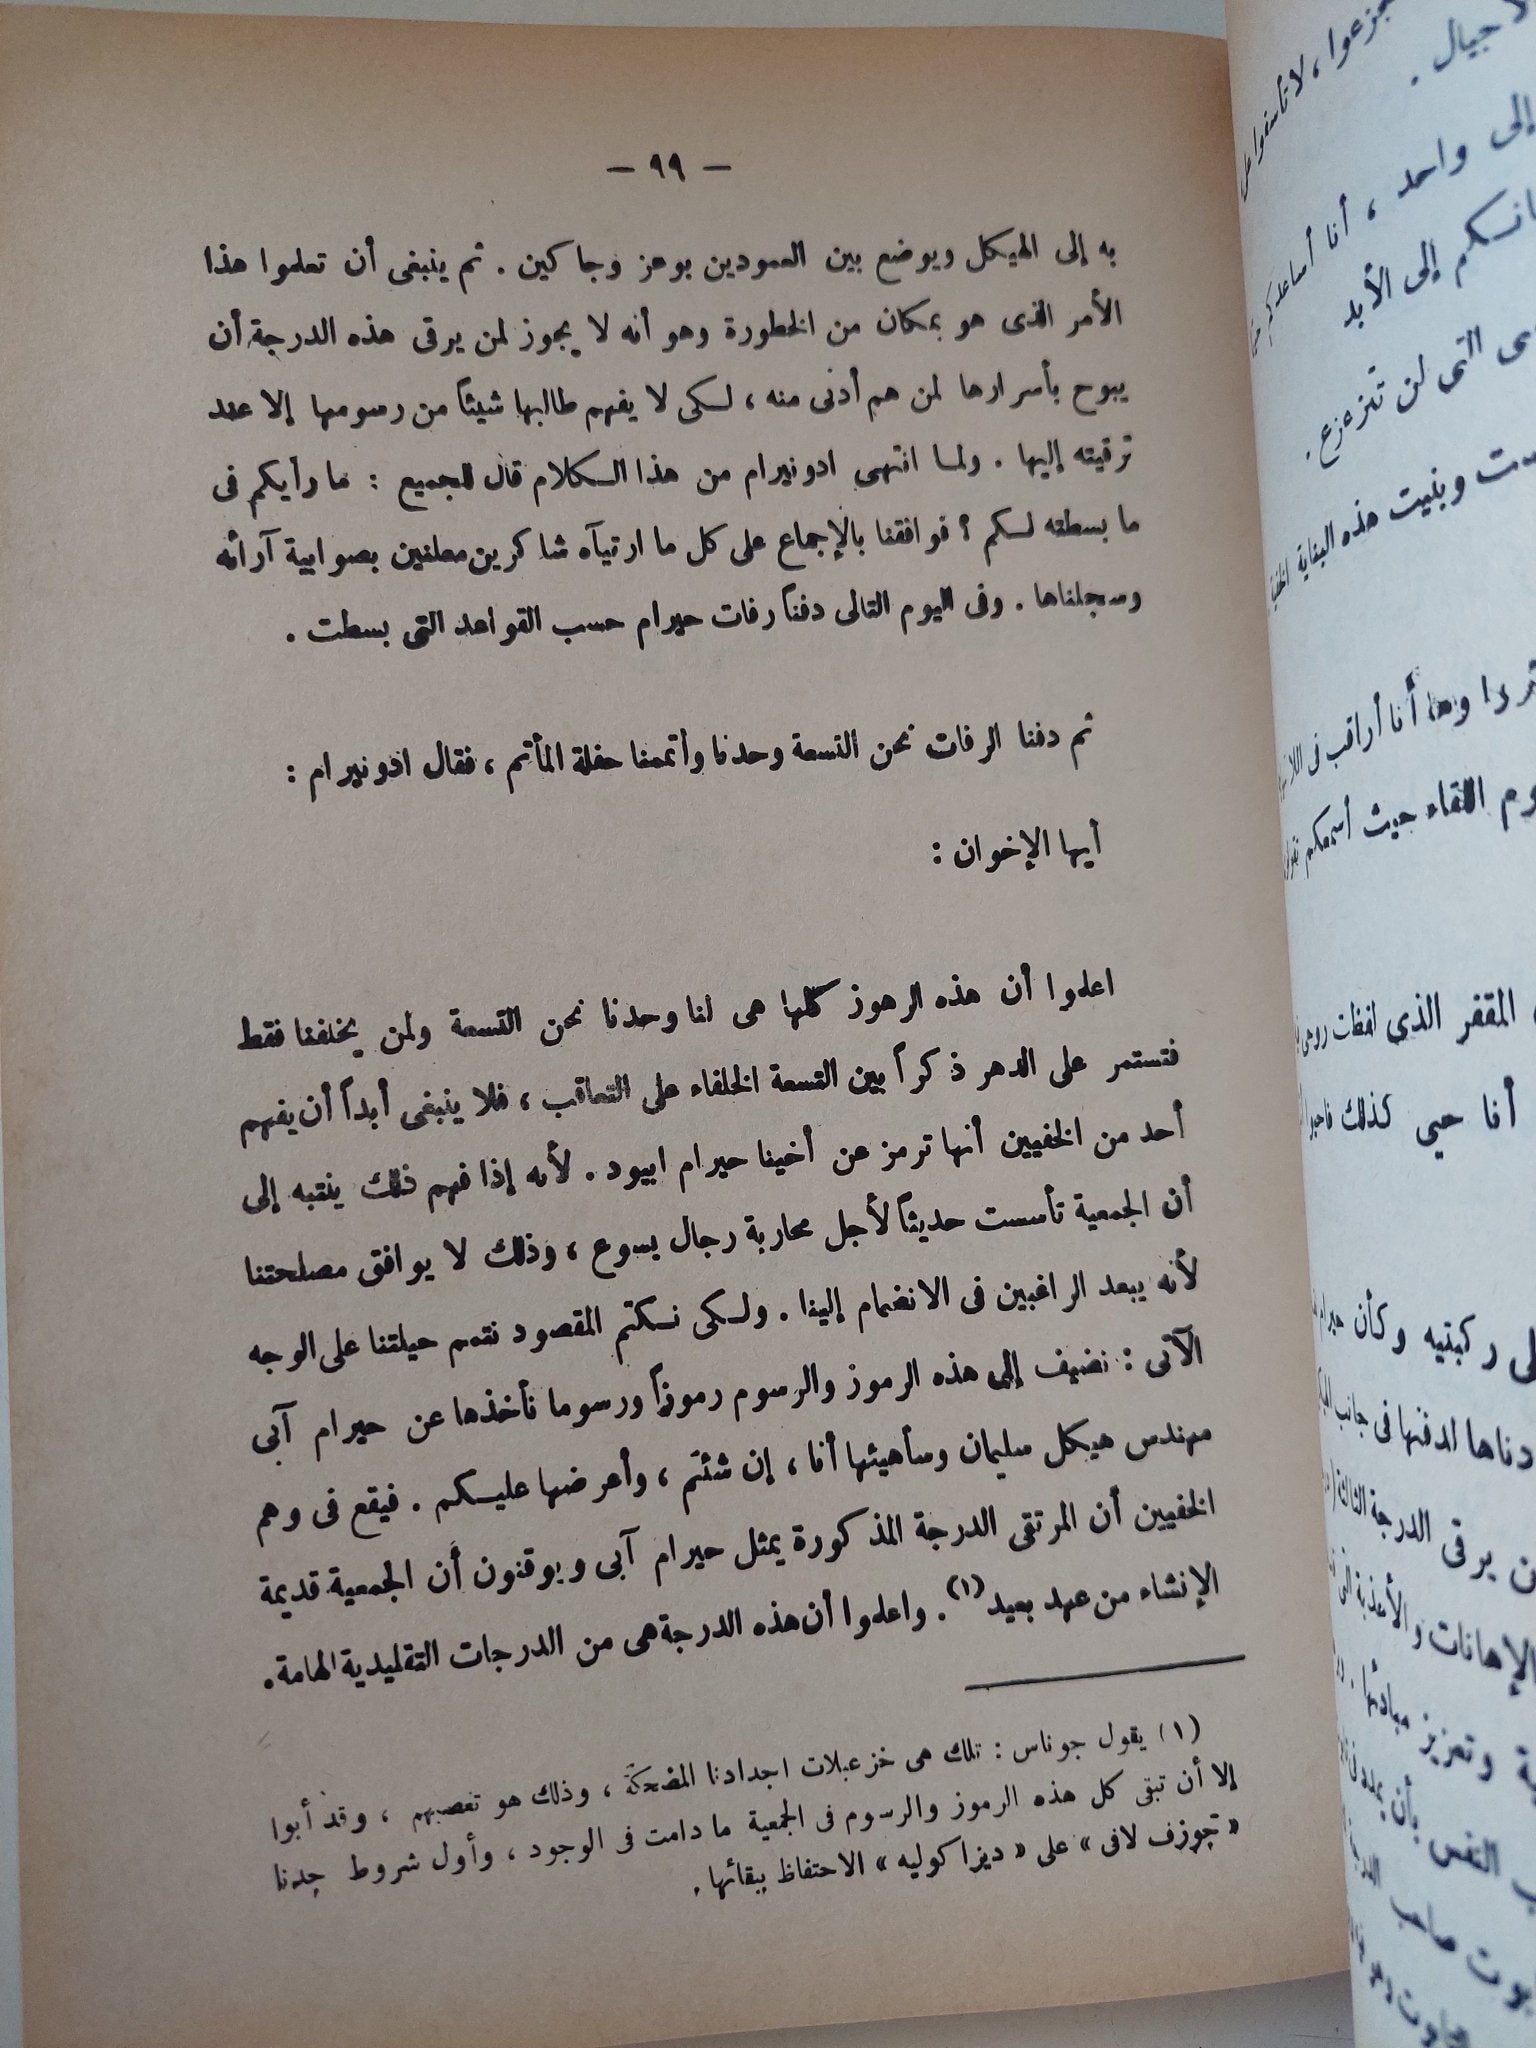 — ٩٩ —
به إلى الهيكل ويوضع بين العمودين بوعز وجاكين . ثم ينبغى أن تعلموا هذا
الأمر الذى هو بمكان من الخطورة وهو أنه لا يجوز لمن يرقى هذه الدرجة أن
يبوح بأسرارها لمن هم أدنى منه ، لكى لا يفهم طالبها شيئاً من رسومها إلا عند
ترقيته إليها . ولما انتهى ادونيرام من هذا الكلام قال للجميع : ما رأيكم فى
ما بسطته لكم ؟ فوافقنا بالإجماع على كل ما ارتيآه شاكرين معلنين بصوابية آرائه
وسجلناها . وفى اليوم التالى دفنا رفات حيرام حسب القواعد التى بسطت .
ثم دفنا الرفات نحن التسعة وحدنا وأتممنا حفلة المأتم ، فقال ادونيرام :
أيها الإخوان :
اعلموا أن هذه الرموز كلها هى لنا وحدنا نحن التسعة ولمن يخلفنا فقط
فتستمر على الدهر ذكراً بين التسعة الخلفاء على التعاقب ، فلا ينبغى أبداً أن يفهم
أحد من الخفيين أنها ترمز عن أخينا حيرام ابيود . لأنه إذا فهم ذلك ينتبه إلى
أن الجمعية تأسست حديثاً لأجل محاربة رجال يسوع ، وذلك لا يوافق مصلحتنا
لأنه يبعد الراغبين فى الانضمام إلينا . ولكى نكتم المقصود نتمم حيلتنا على الوجه
الآتى : نضيف إلى هذه الرموز والرسوم رموزاً ورسوما نأخذها عن حيرام آبى
مهندس هيكل سليمان وسأهيئها أنا ، إن شئتم ، وأعرضها عليكم . فيقع فى وهم
الخفيين أن المرتقى الدرجة المذكورة يمثل حيرام آبى ويوقنون أن الجمعية قديمة
الإنشاء من عهد بعيد (١) . واعلموا أن هذه الدرجة هى من الدرجات التقليدية الهامة .
(١) يقول جوناس : تلك هى خزعبلات اجدادنا المضحكة ، وذلك هو تعصبهم ، وقد أبوا
إلا أن تبقى كل هذه الرموز والرسوم فى الجمعية ما دامت فى الوجود ، وأول شروط جدنا
« جوزف لافى » على « ديزاكوليه » الاحتفاظ ببقائها .
لا تأسفوا
الأجيال .
إلى واحد ، أنا أساعدكم
إلى الأبد
التى لن تتزعزع .
وبنيت هذه البناية
أنا أراقب فى
اللقاء حيث أسمعكم
المقفر الذي لفظت روحى
أنا حي كذلك
ركبتيه وكأن حيرام
لدفنها فى جانب
يرقى الدرجة الثالثة
الإهانات والأعذبة التى
وتعزيز مبادئها .
النفس بأن